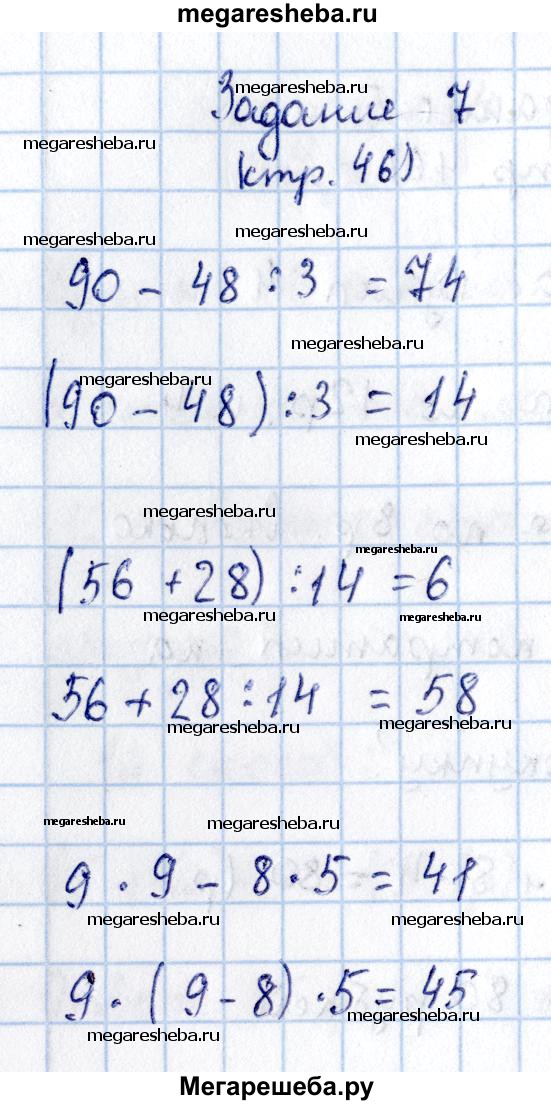 megaresheba.ru
megaresheba.ru
Задание 7
megaresheba.ru
(стр. 46)
megaresheba.ru
megaresheba.ru
90 - 48 : 3 = 74
megaresheba.ru
megaresheba.ru
(90 - 48) : 3 = 14
megaresheba.ru
megaresheba.ru
megaresheba.ru
(56 + 28) : 14 = 6
megaresheba.ru megaresheba.ru
56 + 28 : 14 = 58
megaresheba.ru megaresheba.ru
megaresheba.ru megaresheba.ru
9 · 9 - 8 · 5 = 41
megaresheba.ru megaresheba.ru
9 · (9 - 8) · 5 = 45
megaresheba.ru
megaresheba.ru
Мегарешеба.ру